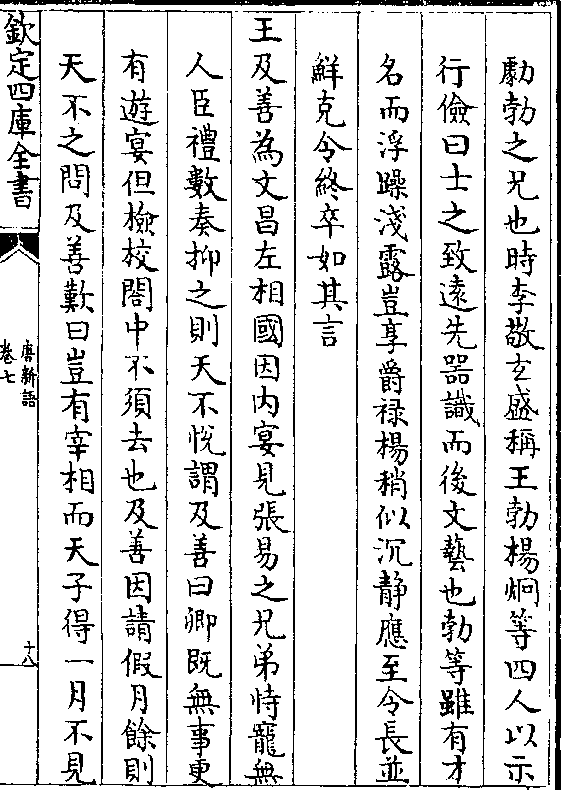 勮勃之兄也時李敬玄盛稱王勃楊炯等四人以示
行儉曰士之致遠先器識而後文藝也勃等雖有才
名而浮躁淺露豈享爵禄楊稍似沉靜應至令長並
鮮克令終卒如其言
王及善為文昌左相國因内宴見張易之兄弟恃寵無
人臣禮數奏抑之則天不悅謂及善曰卿既無事更
有遊宴但檢校閤中不須去也及善因請假月餘則
天不之問及善歎曰豈有宰相而天子得一月不見
欽定四庫全書
唐新語
卷七
十八